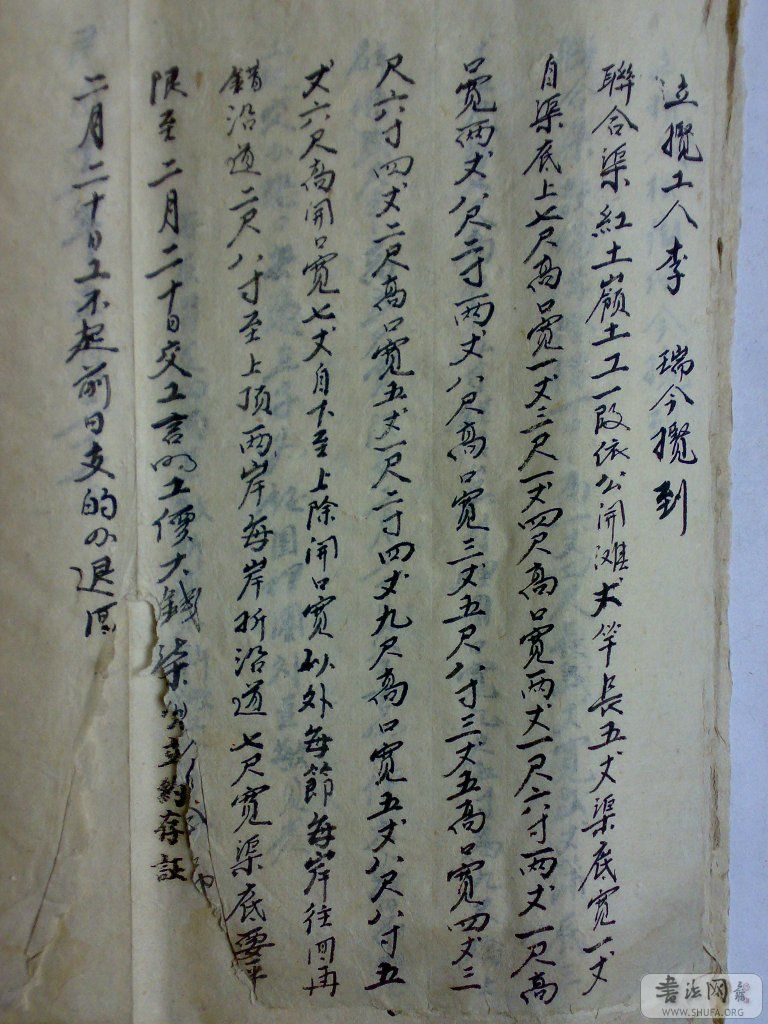 立攬工人李 瑞今攬到
聯合渠紅土嶺土工一段依公開灘丈竿長五丈渠底寬一丈
自渠底上七尺高口寬一丈三尺一丈四尺高口寬兩丈一尺六寸兩丈一尺高
口寬兩丈八尺二寸兩丈八尺高口寬三丈五尺八寸三丈五高口寬四丈三
尺六寸四丈二尺高口寬五丈一尺二寸四丈九尺高口寬五丈八尺八寸五
丈六尺高開口寬七丈自下至上除開口寬以外每節每岸往回再
錯沿道二尺八寸至上頂兩岸每岸折沿道七尺寬渠底要平
限至二月二十日交工言明土價大錢柒 立約存証
二月二十日工不起前日支的 退回
書法网
WWW.SHUFA.ORG